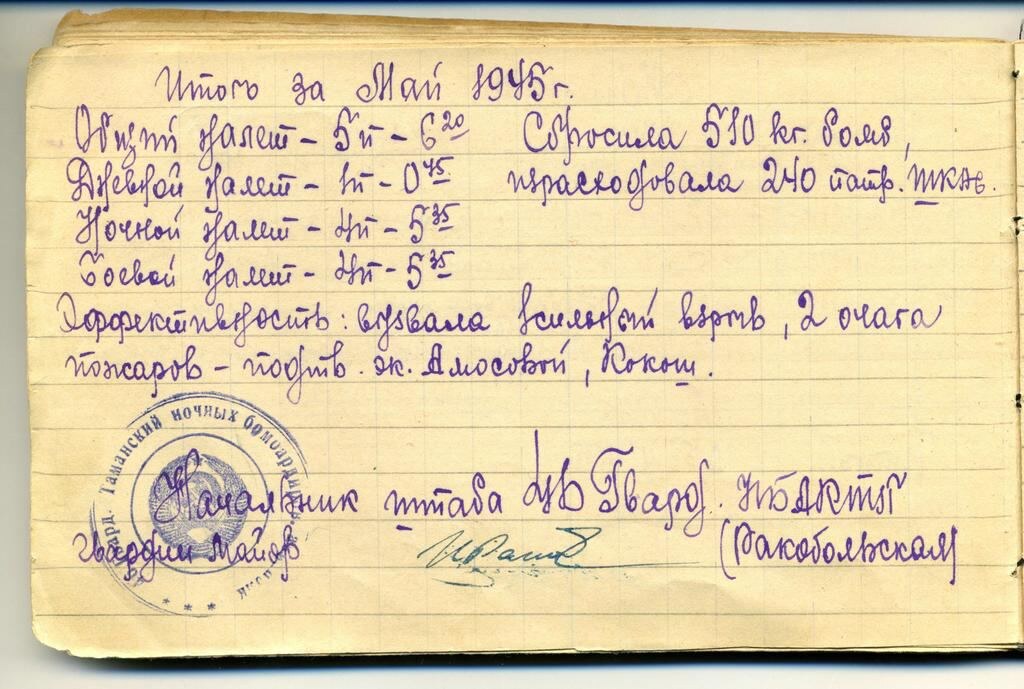 Итого за Май 1945г.
Общий налет – 5п – 6 20
Сбросила 510 кг. бомб,
Дневной налет – 1п – 0 45
израсходовала 240 патр. шкас.
Ночной налет – 4п – 5 35
Боевой налет – 4п – 5 35
Эффективность: вызвала 1 сильный взрыв, 2 очага
пожаров – подтв. эк. Амосовой, Рокош.
Таманский ночных бомбарди
Начальник штаба 46 Гвард. НБАКТП
гвардии Майор
(Ракобольская)